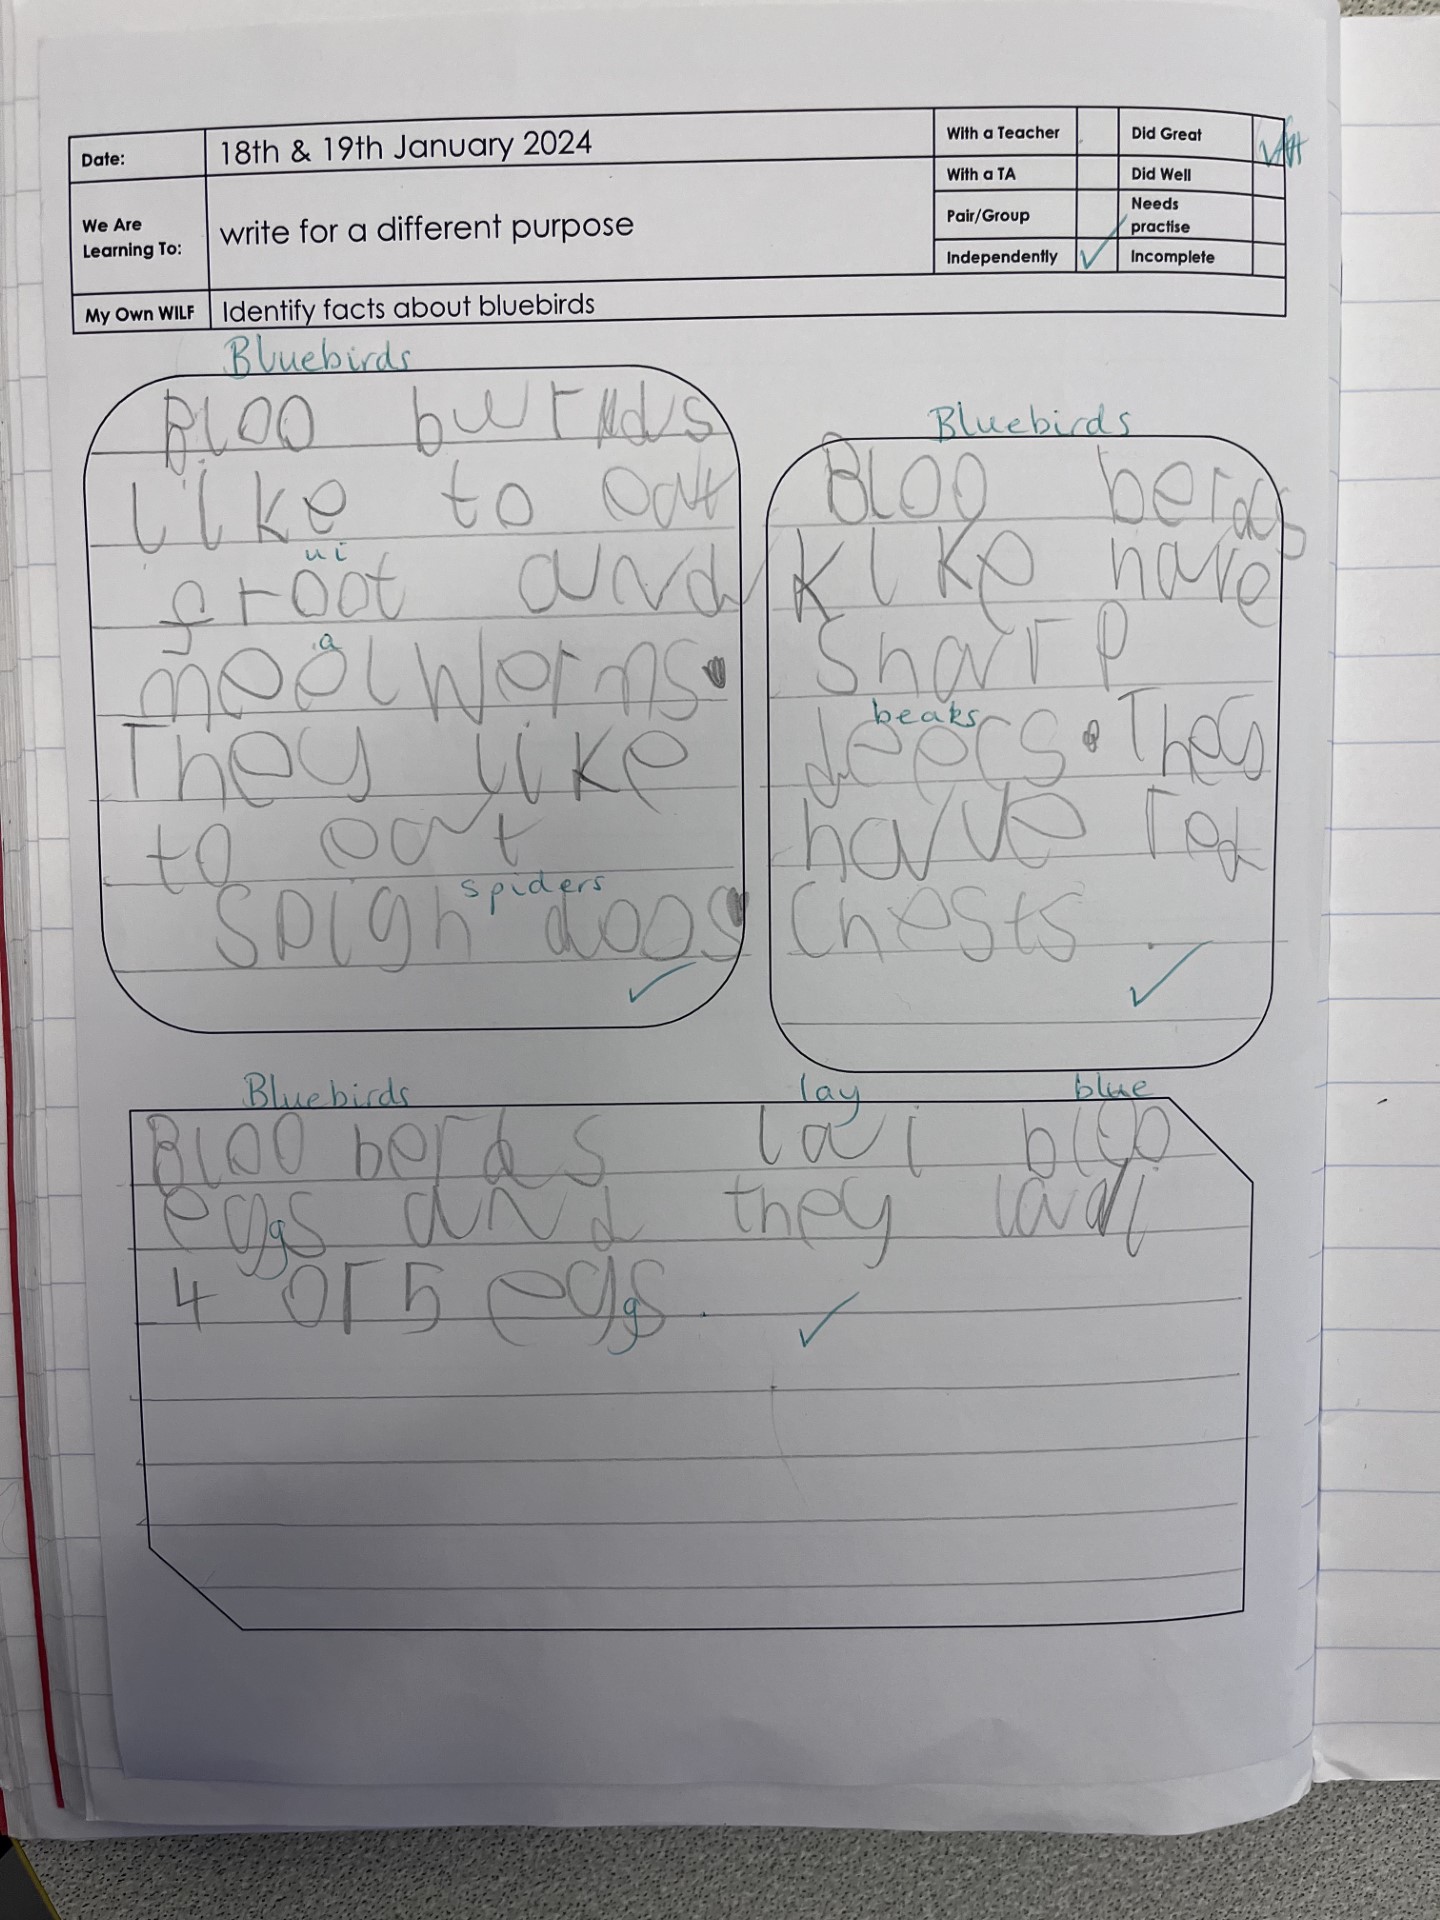 Date: 18th & 19th January 2024
We Are Learning To: write for a different purpose
My Own WILF Identify facts about bluebirds
With a Teacher Did Great
With a TA Did Well
Pair/Group Needs practise
Independently Incomplete
Bluebirds
BLOO burds
Like to eat
ui
froot and
a
meelworms.
They like
to eat
spiders
Spigh doos
Bluebirds
BLOO berds
Like have
Sharp
beaks
They
have red
Chests
Bluebirds lay blue
BLOO berds lai bloo
eggs and they lai
4 or 5 eggs.